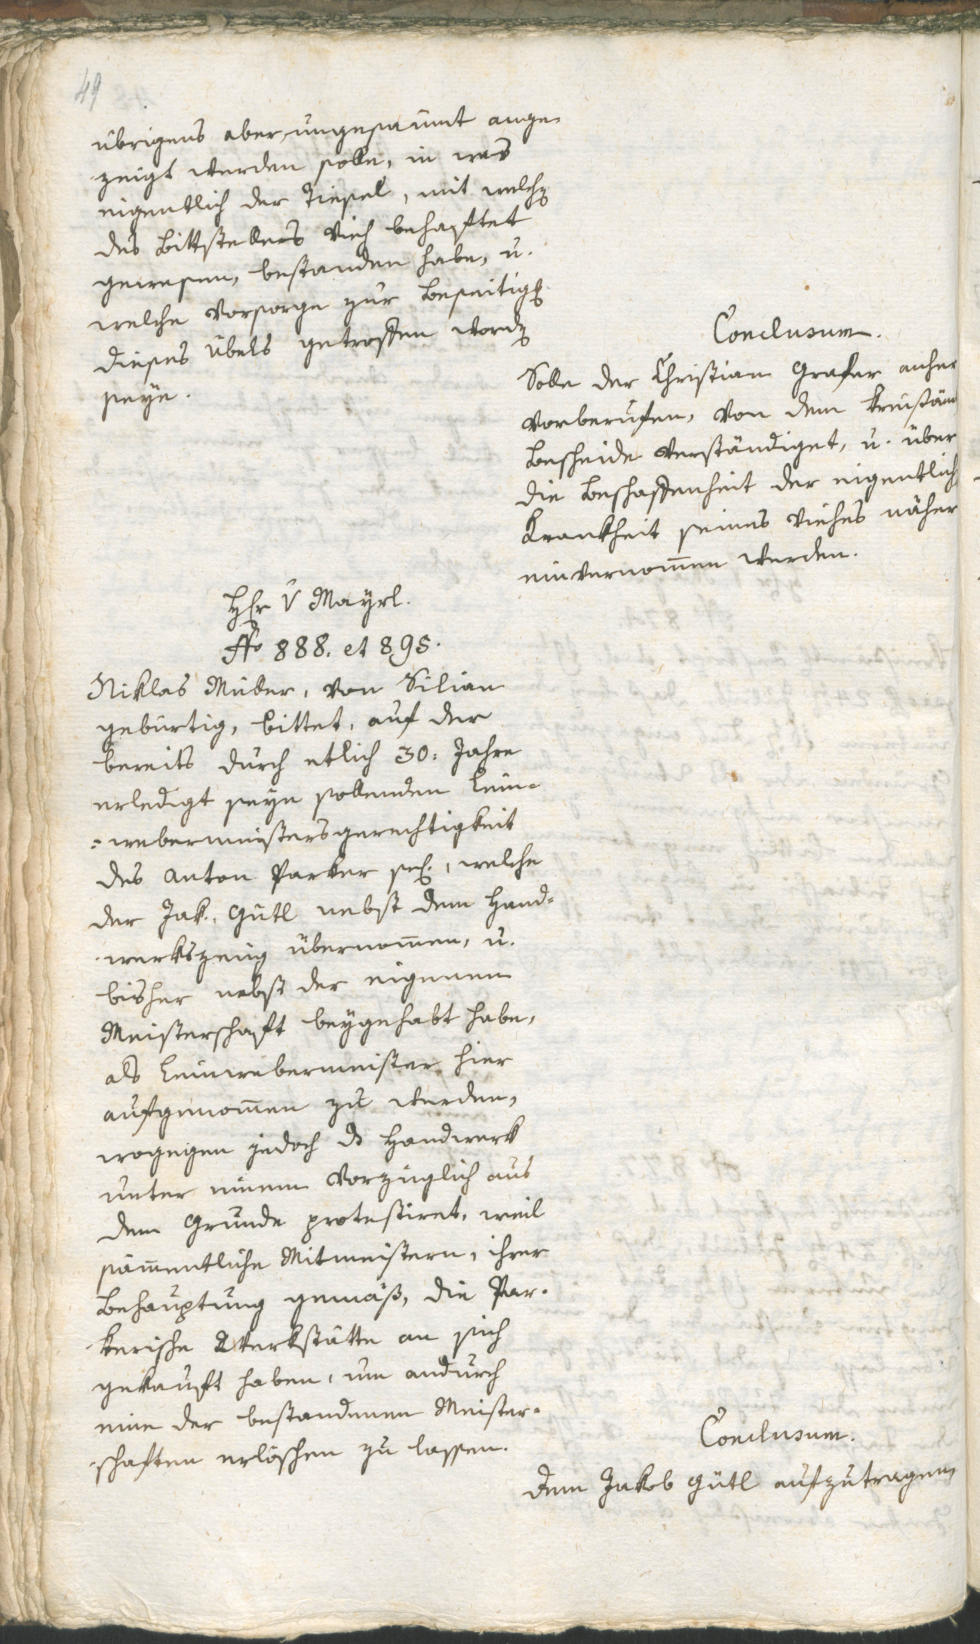 49
übrigens aber ungesaumt ange-
zeigt werden solle, in was
eigentlich der Fiesel, mit welch
des Bittstellers Vieh behaftet
gewesen, bestanden habe, u.
welche Vorsorge zur Beseitig
dieses Übels getroffen word
seye.
Conclusum.
Solle der Christian Grafer anher
Vorberufen, von dem kreisäm
Bescheide verständiget, u. über
die Beschaffenheit der eigentlich
Krankheit seines Viehes näher
einvernommen werden.
Hr V Mayrl.
No 888. et 895.
Niklas Müller, von Silian
gebürtig, bittet, auf der
bereits durch etlich 30: Jahre
erledigt seyn sollenden Lein-
=webermeistersgerechtigkeit
des Anton Parker sel., welche
der Jak. Gütl nebst dem Hand-
werkszeug übernommen, u.
bisher nebst der eigenen
Meisterschaft beygehabt habe,
als Leinwebermeister hier
aufgenommen zu werden,
wogegen jedoch ds Handwerk
unter einem Vorzüglich aus
dem Grunde protestiret, weil
sämmentliche Mitmeistern, ihrer
Behauptung gemäß, die Par-
kerische Werkstätte an sich
gekauft haben, um andurch
eine der bestandenen Meister-
schaften erlöschen zu lassen.
Conclusum.
Dem Jakob Gütl aufzutragen,